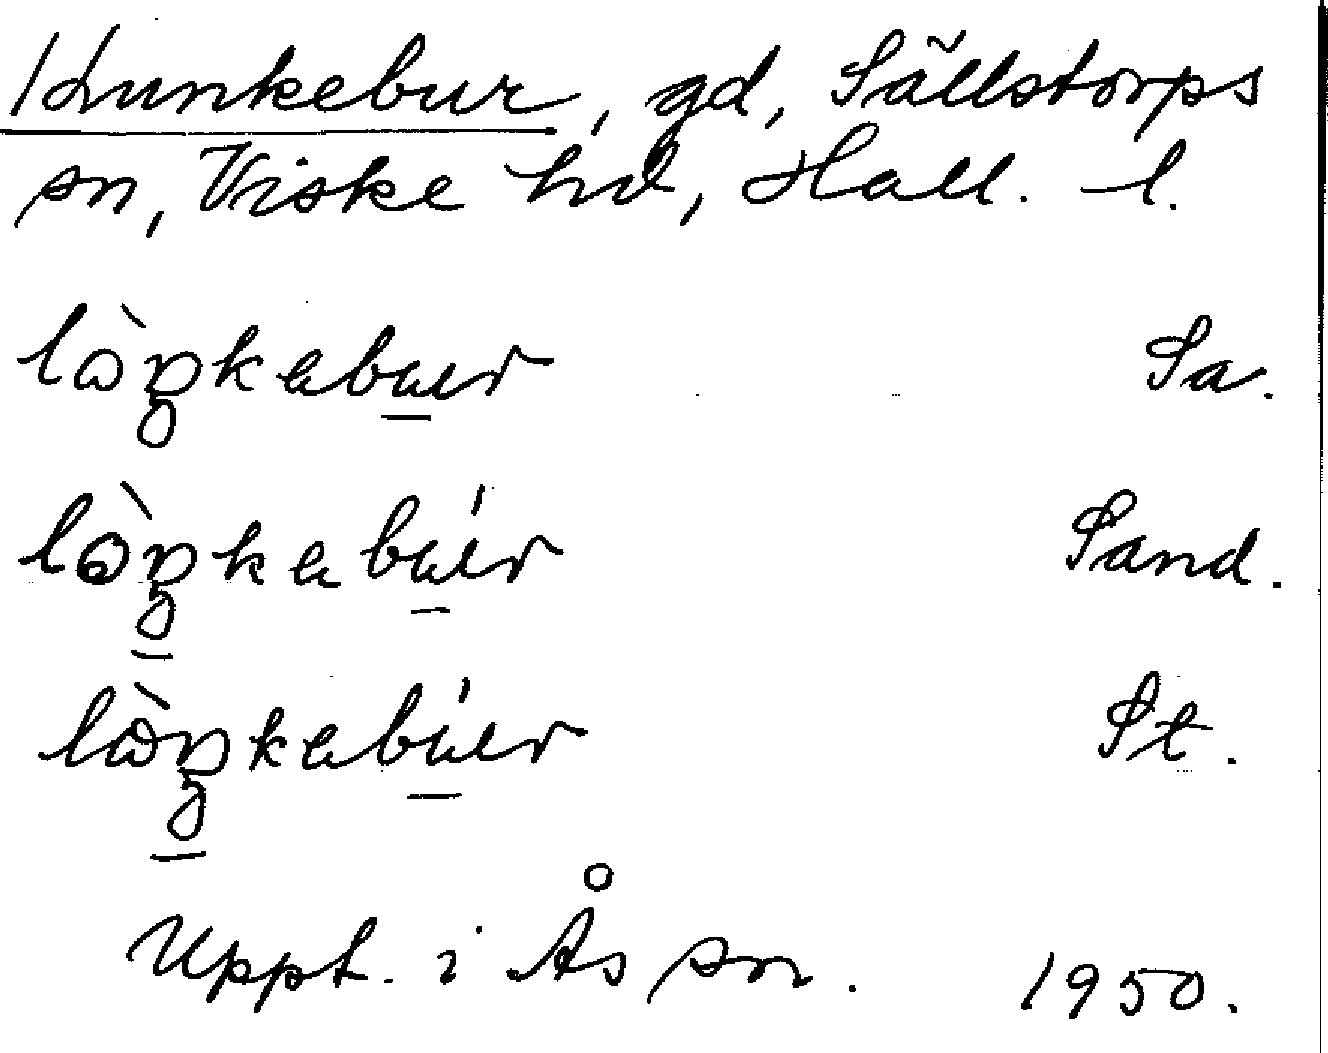 gd, Sällstorps
sn, Viske hd, Hall. l.
lòŋkabuer Sa.
lòŋkabúer Sand.
lòŋkabúer St.
Uppt. i Ås sn. 1950.